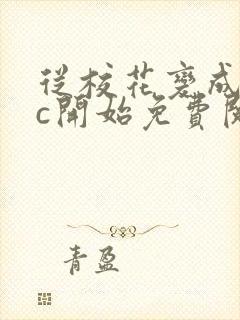 從校花變成
c開始免費閱
青盈